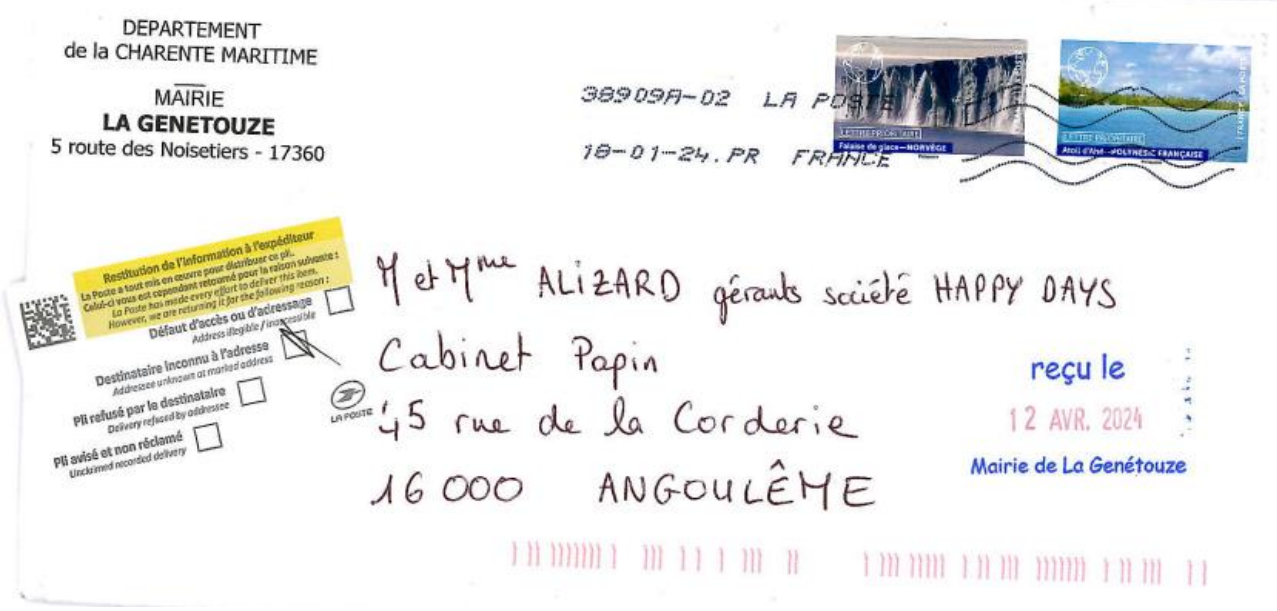 DEPARTEMENT
de la CHARENTE MARITIME
MAIRIE
LA GENETOUZE
5 route des Noisetiers - 17360
38909A-02 LA POSTE
18-01-24.PR FRANCE
LETTRE PRIORITAIRE
Falaise de glace—NORVÈGE
LETTRE PRIORITAIRE
Atoll d'Ahé—POLYNÉSIE FRANÇAISE
FRANCE LA POSTE
Restitution de l'information à l'expéditeur
La Poste a tout mis en œuvre pour distribuer ce pli.
Celui-ci vous est cependant retourné pour la raison suivante :
La Poste has made every effort to deliver this item.
However, we are returning it for the following reason :
Défaut d'accès ou d'adressage
Address illegible / inaccessible
Destinataire inconnu à l'adresse
Addressee unknown at marked address
Pli refusé par le destinataire
Delivery refused by addressee
Pli avisé et non réclamé
Unclaimed recorded delivery
LA POSTE
M et Mme ALIZARD gérants société HAPPY DAYS
Cabinet Papin
45 rue de la Corderie
16 000 ANGOULÊME
reçu le
12 AVR. 2024
Mairie de La Genétouze